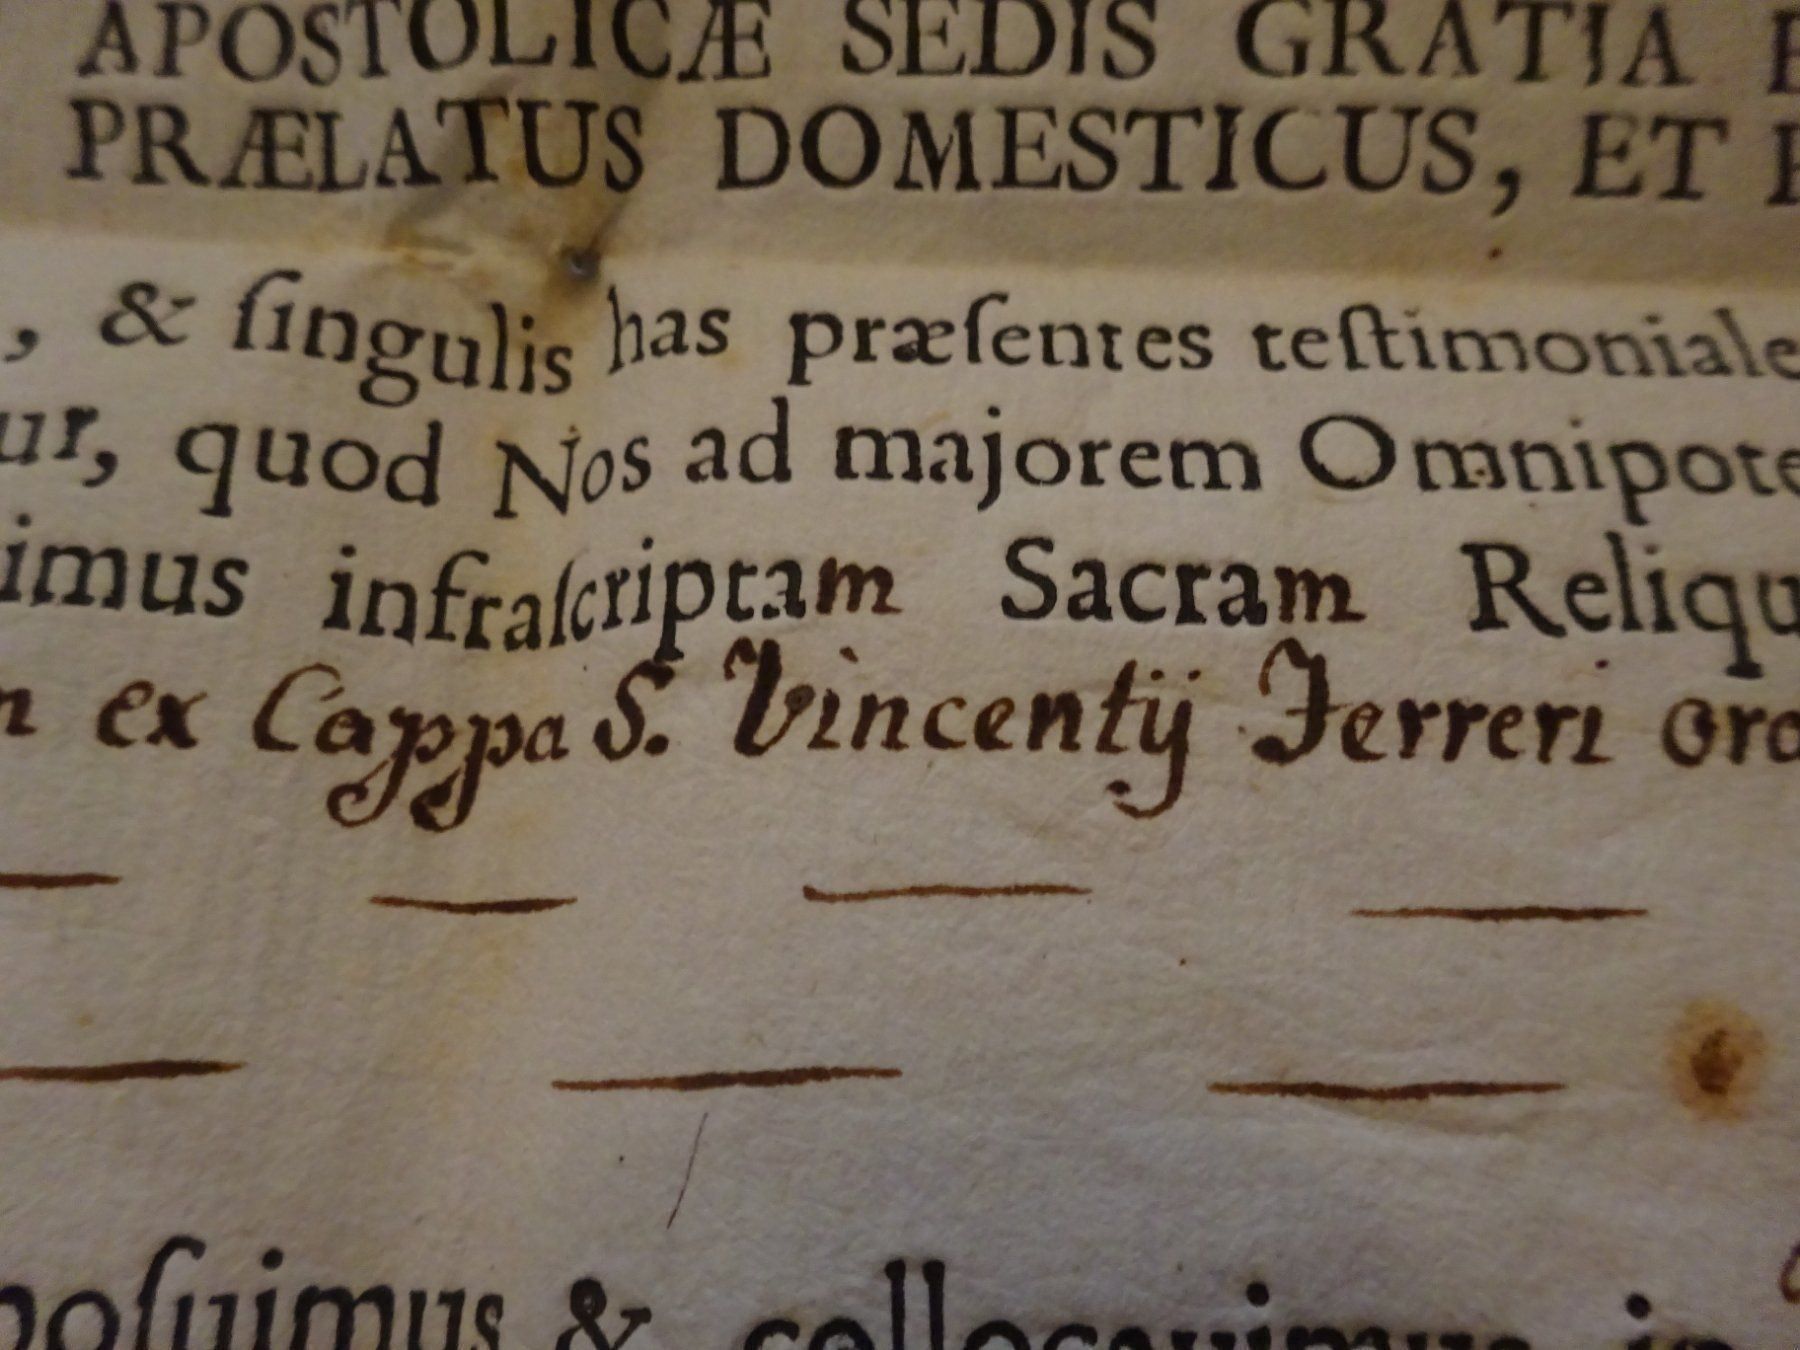 APOSTOLICÆ SEDIS GRATIA
PRÆLATUS DOMESTICUS, ET
, & ſingulis has præſentes teſtimoniale
ur, quod Nos ad majorem Omnipote
imus infraſcriptam Sacram Reliqu
ex Cappa S. Vincentij Ferreri ord
poſuimus & collocavimus in